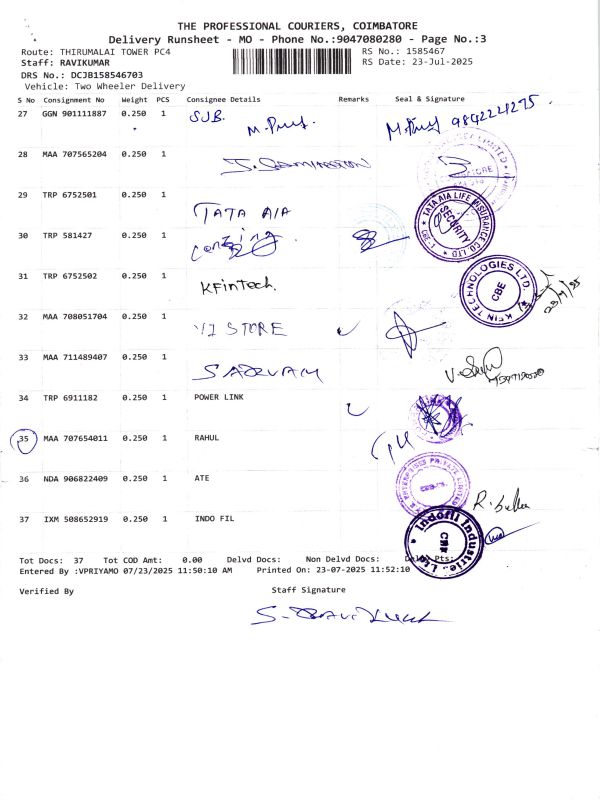 THE PROFESSIONAL COURIERS, COIMBATORE
Delivery Runsheet - MO - Phone No.:9047080280 - Page No.:3
Route: THIRUMALAI TOWER PC4 RS No.: 1585467
Staff: RAVIKUMAR RS Date: 23-Jul-2025
DRS No.: DCJB158546703
Vehicle: Two Wheeler Delivery
S No Consignment No Weight PCS Consignee Details Remarks Seal & Signature
27 GGN 901111887 0.250 1 SJB.
28 MAA 707565204 0.250 1
29 TRP 6752501 0.250 1 TATA AIA
TATA AIA LIFE INSURANCE CO LTD SECURITY CBE-1
30 TRP 581427 0.250 1
31 TRP 6752502 0.250 1 KFintech.
KFIN TECHNOLOGIES LTD. CBE
32 MAA 708051704 0.250 1 VI STORE
33 MAA 711489407 0.250 1
34 TRP 6911182 0.250 1 POWER LINK
35 MAA 707654011 0.250 1 RAHUL
36 NDA 906822409 0.250 1 ATE
ENTERPRISES PRIVATE LIMITED
37 IXM 508652919 0.250 1 INDO FIL
Indofil Industries Ltd. CBE
Tot Docs: 37 Tot COD Amt: 0.00 Delvd Docs: Non Delvd Docs: Pts:
Entered By :VPRIYAMO 07/23/2025 11:50:10 AM Printed On: 23-07-2025 11:52:10
Verified By Staff Signature